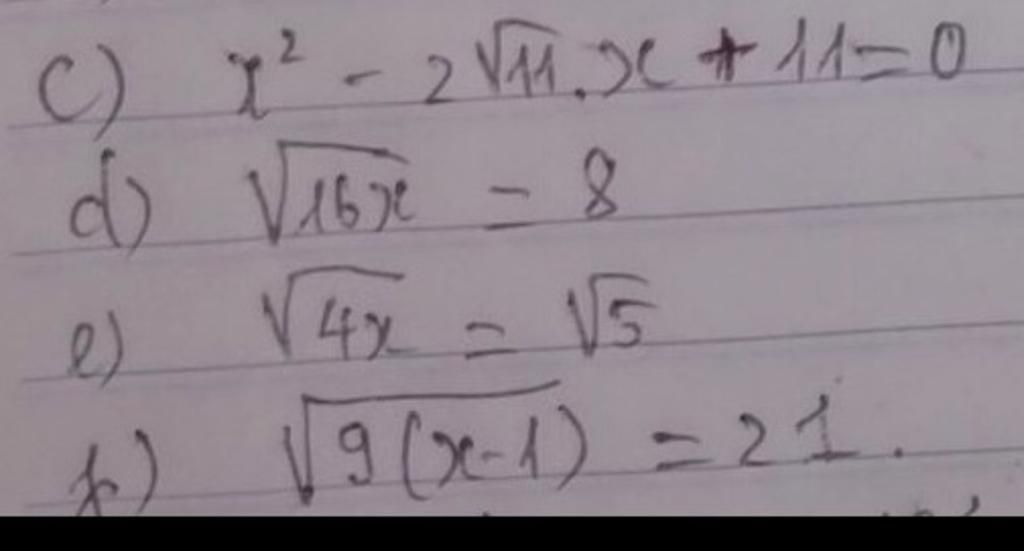 c) x² - 2√11.x + 11 = 0
d) √16x = 8
e) √4x = √5
f) √9(x-1) = 21.